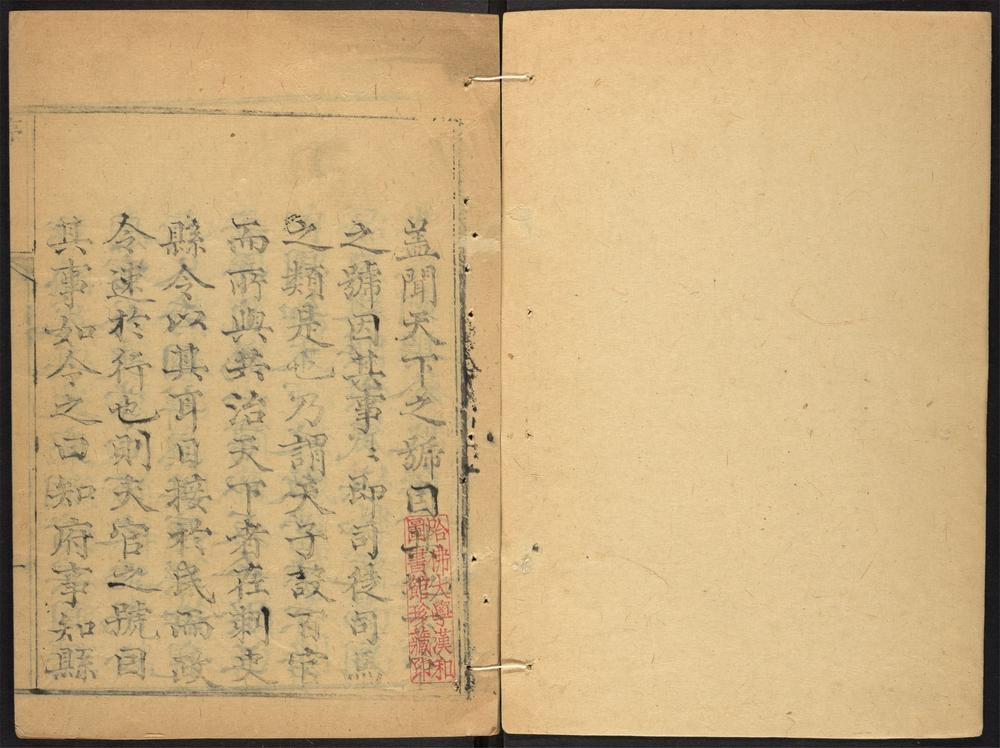 盖聞天下之號因
之號因其事〻即司徒司馬
之類是也乃謂天子設百官
而所與共治天下者在刺史
縣令以其耳目接於民而政
令速於行也則夫官之號因
其事如令之曰知府事知縣
哈佛大學漢和
圖書館珍藏印